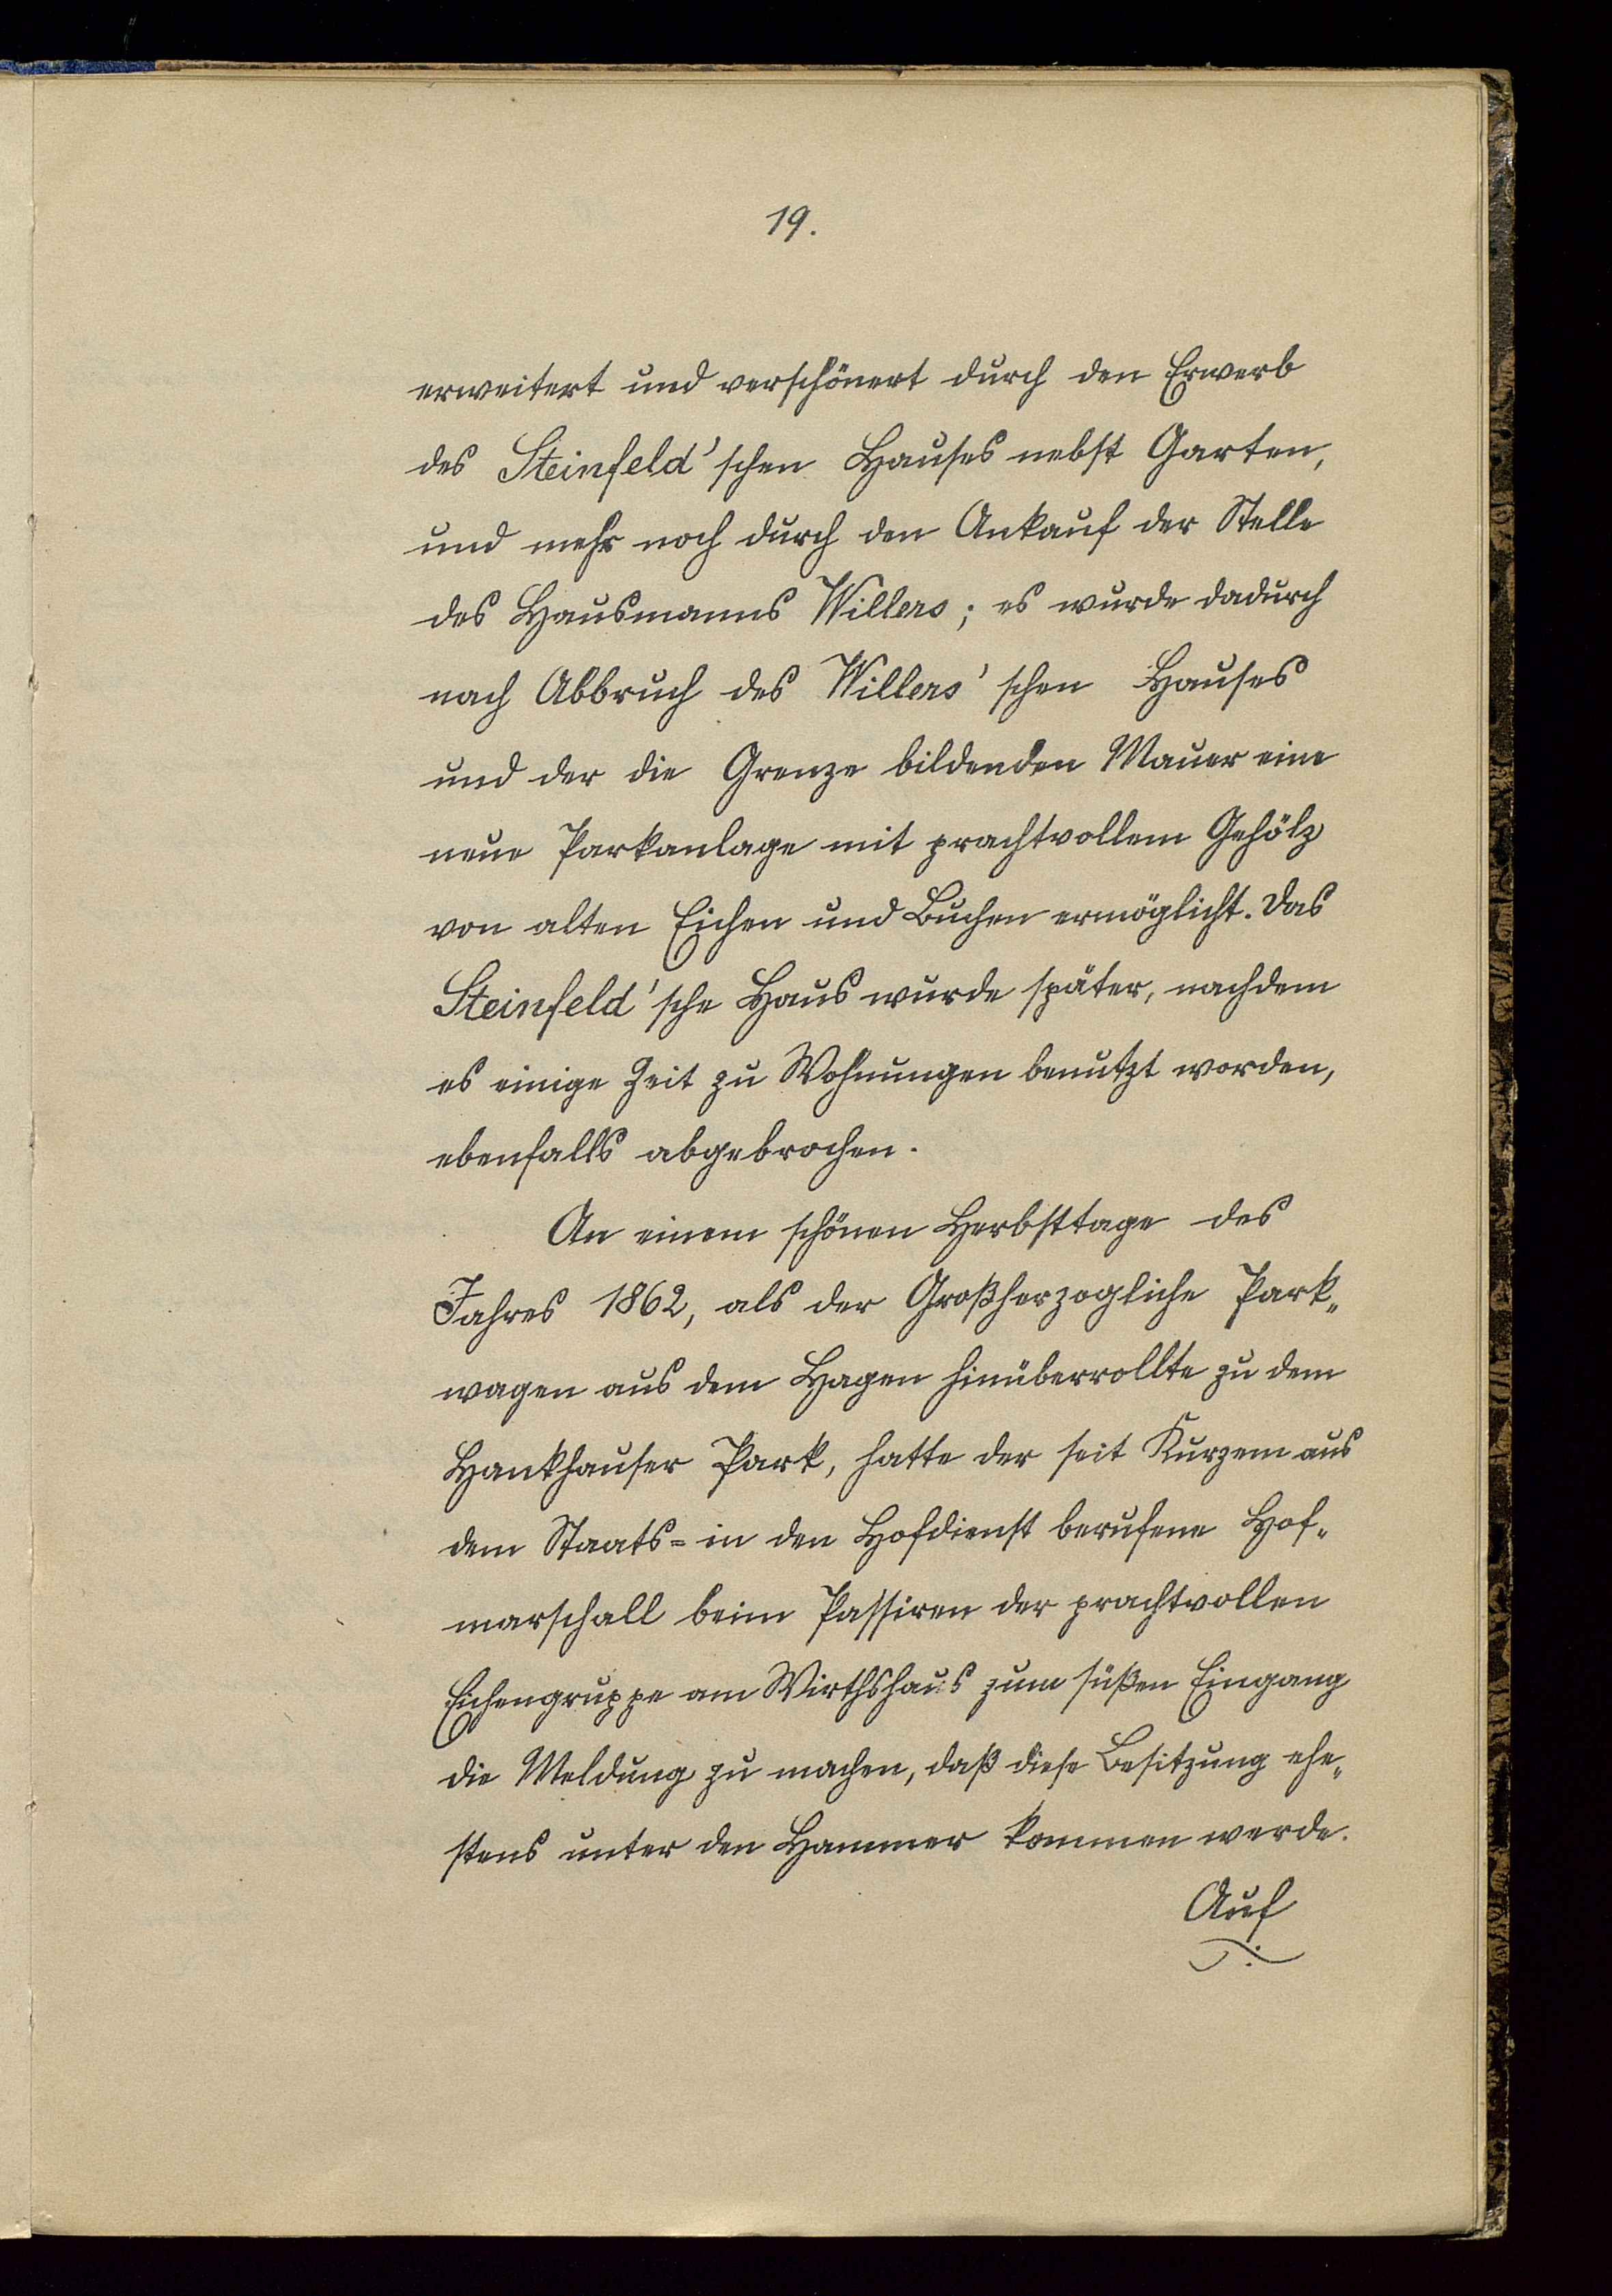 19.
erweitert und verschönert durch den Erwerb
des Steinfeld'schen Hauses nebst Garten,
und mehr noch durch den Ankauf der Stelle
des Hausmanns Willers; es wurde dadurch
nach Abbruch des Willers'schen Hauses
und der die Grenze bildenden Mauer eine
neue Parkanlage mit prachtvollem Gehölz
von alten Eichen und Buchen ermöglicht. Das
Steinfeld'sche Haus wurde später, nachdem
es einige Zeit zu Wohnungen benutzt worden,
ebenfalls abgebrochen.
An einem schönen Herbsttage des
Jahres 1862, als der Großherzogliche Park„
wagen aus dem Hagen hinüberrollte zu dem
Hankhauser Park, hatte der seit Kurzem aus
dem Staats= in den Hofdienst berufene Hof„
marschall beim Passiren der prachtvollen
Eichengruppe am Wirthshaus zum süßen Eingang
die Meldung zu machen, daß diese Besitzung ehe„
stens unter den Hammer kommen werde.
Auf